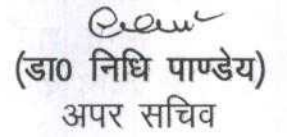 (डा0 निधि पाण्डेय)
अपर सचिव